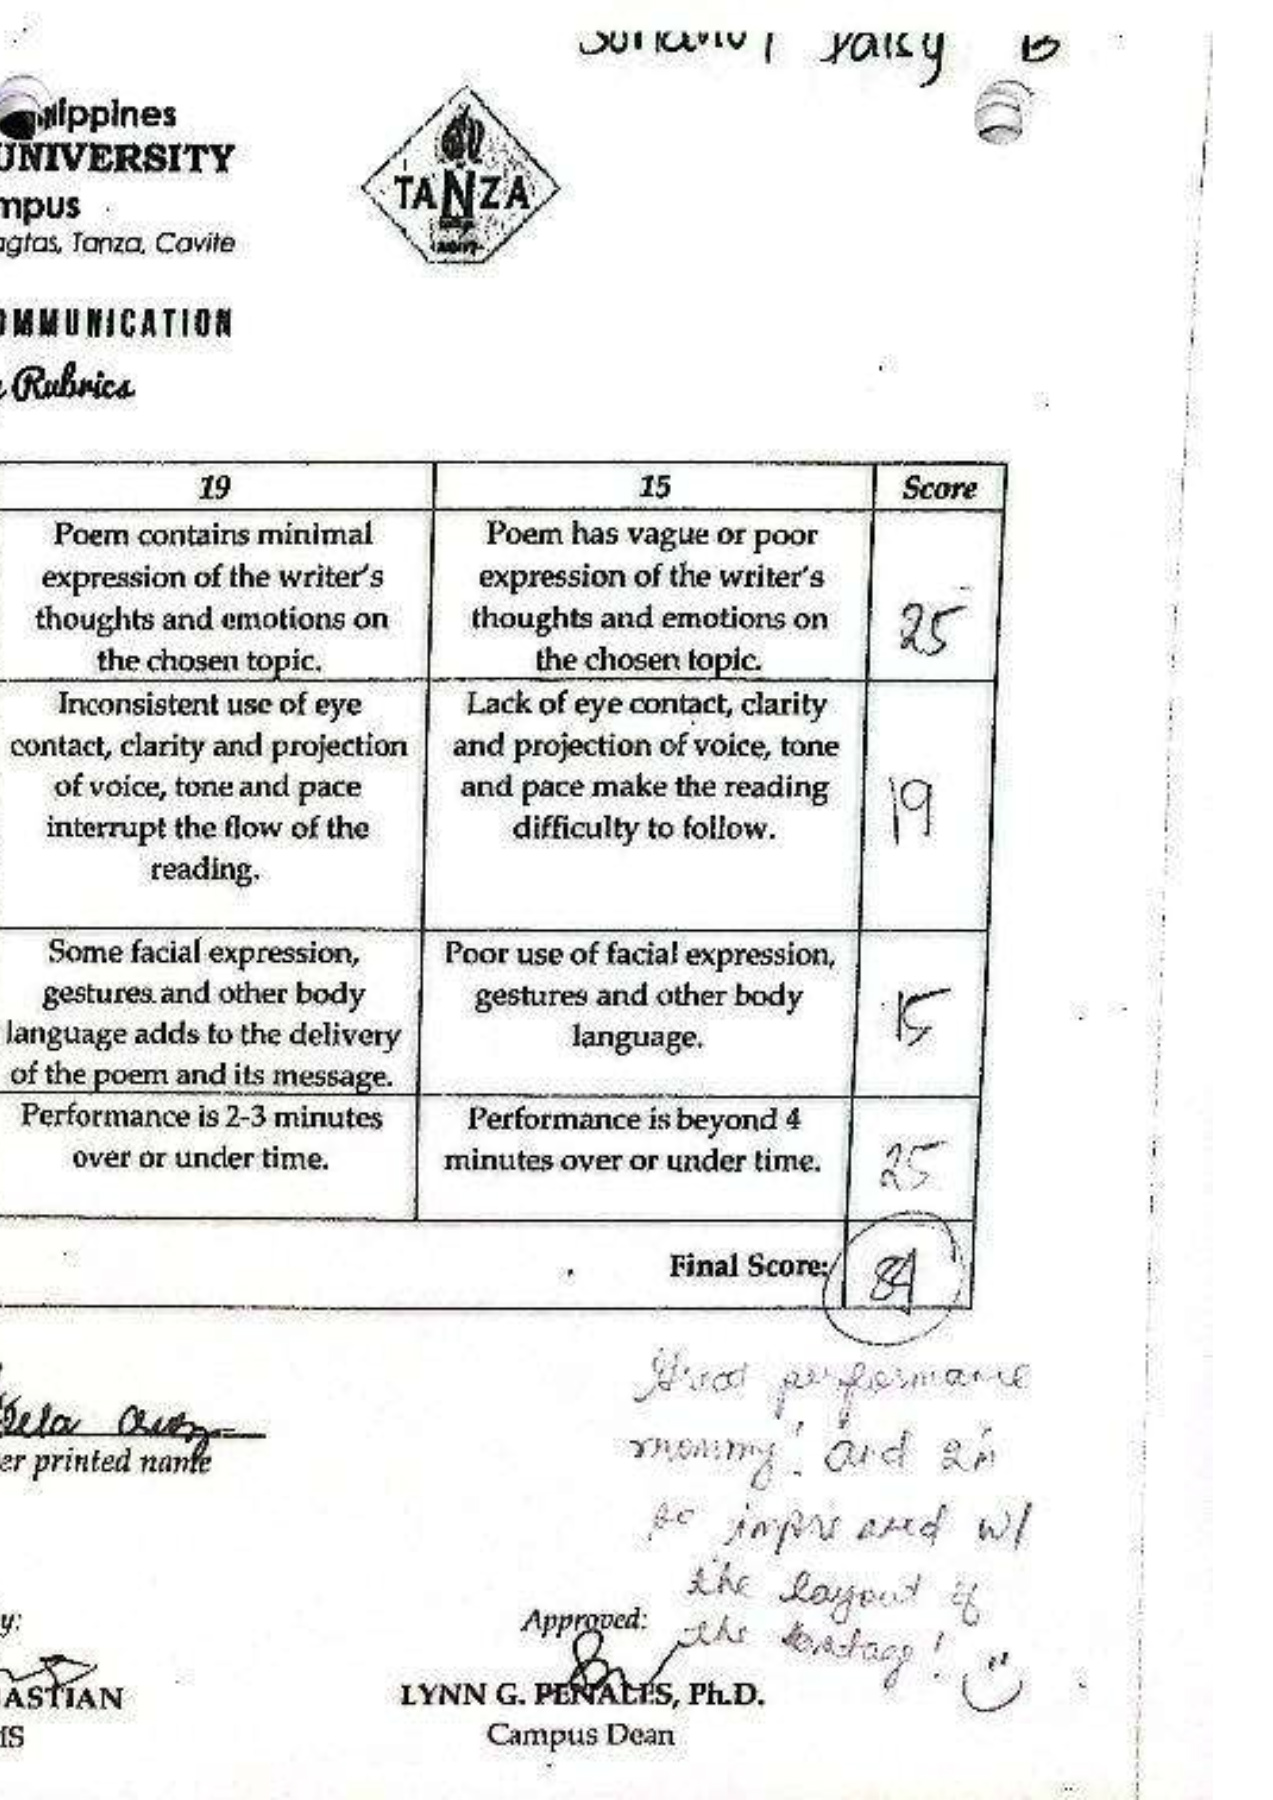 Daisy B
ippines
UNIVERSITY
mpus
agtas, Tanza, Cavite
TANZA
OMMUNICATION
Rubrics
19 15 Score
Poem contains minimal
expression of the writer's
thoughts and emotions on
the chosen topic.
Poem has vague or poor
expression of the writer's
thoughts and emotions on
the chosen topic.
25
Inconsistent use of eye
contact, clarity and projection
of voice, tone and pace
interrupt the flow of the
reading.
Lack of eye contact, clarity
and projection of voice, tone
and pace make the reading
difficulty to follow.
19
Some facial expression,
gestures and other body
language adds to the delivery
of the poem and its message.
Poor use of facial expression,
gestures and other body
language.
15
Performance is 2-3 minutes
over or under time.
Performance is beyond 4
minutes over or under time.
25
Final Score: 84
Great performance
mommy! and I'm
so impressed w/
the layout of
the !
Dela Cruz
er printed name
y:
ASTIAN
MS
Approved:
LYNN G. PENALES, Ph.D.
Campus Dean